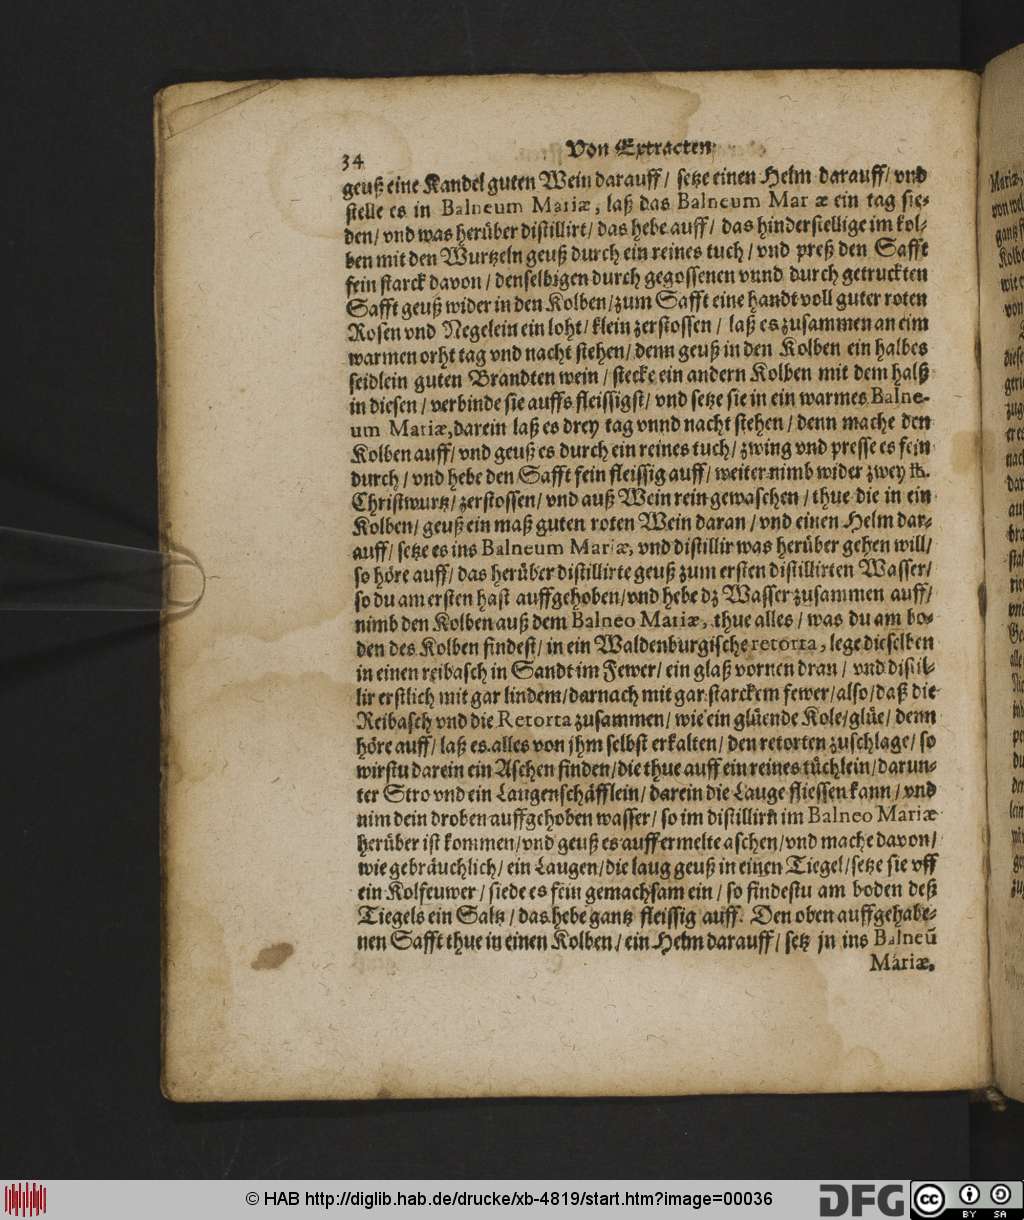 34
Von Extracten
geuß eine Kandel guten Wein darauff/ setze einen Helm darauff/ vnd
stelle es in Balneum Mariæ, laß das Balneum Mar æ ein tag sie⸗
den/ vnd was herüber distillirt/ das hebe auff/ das hinderstellige im kol⸗
ben mit den Wurtzeln geuß durch ein reines tuch/ vnd preß den Safft
fein starck davon/ denselbigen durch gegossenen vnnd durch getruckten
Safft geuß wider in den Kolben/ zum Safft eine handt voll guter roten
Rosen vnd Negelein ein loht/ klein zerstossen/ laß es zusammen an eim
warmen orht tag vnd nacht stehen/ denn geuß in den Kolben ein halbes
seidlein guten Brandten wein/ stecke ein andern Kolben mit dem halß
in diesen/ verbinde sie auffs fleissigst/ vnd setze sie in ein warmes Balne-
um Mariæ, darein laß es drey tag vnnd nacht stehen/ denn mache den
Kolben auff/ vnd geuß es durch ein reines tuch/ zwing vnd presse es fein
durch/ vnd hebe den Safft fein fleissig auff/ weiter nimb wider zwey ℔.
Christwurtz/ zerstossen/ vnd auß Wein rein gewaschen/ thue die in ein
Kolben/ geuß ein maß guten roten Wein daran/ vnd einen Helm dar⸗
auff/ setze es ins Balneum Mariæ, vnd distillir was herüber gehen will/
so höre auff/ das herüber distillirte geuß zum ersten distillirten Wasser/
so du am ersten hast auffgehoben/ vnd hebe dz Wasser zusammen auff/
nimb den Kolben auß dem Balneo Mariæ, thue alles/ was du am bo⸗
den des Kolben findest/ in ein Waldenburgische retorta, lege dieselben
in einen reibasch in Sandt im Fewer/ ein glaß vornen dran/ vnd distil⸗
lir erstlich mit gar lindem/ darnach mit gar starckem fewer/ also/ daß die
Reibasch vnd die Retorta zusammen/ wie ein glüende Kole/ glüe/ denn
höre auff/ laß es alles von jhm selbst erkalten/ den retorten zuschlage/ so
wirstu darein ein Aschen finden/ die thue auff ein reines tüchlein/ darun⸗
ter Stro vnd ein Laugenschäfflein/ darein die Lauge fliessen kann/ vnd
nim dein droben auffgehoben wasser/ so im distillirn im Balneo Mariæ
herüber ist kommen/ vnd geuß es auff ermelte aschen/ vnd mache davon/
wie gebräuchlich/ ein Laugen/ die laug geuß in einen Tiegel/ setze sie vff
ein Kolfeuwer/ siede es fein gemachsam ein/ so findestu am boden deß
Tiegels ein Saltz/ das hebe gantz fleissig auff. Den oben auffgehabe⸗
nen Safft thue in einen Kolben/ ein Helm darauff/ setz jn ins Balneũ
Mariæ,
© HAB http://diglib.hab.de/drucke/xb-4819/start.htm?image=00036
DFG
cc
BY SA